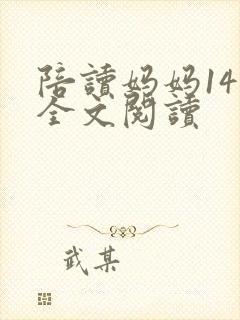 陪讀妈妈14
全文閱讀
武某